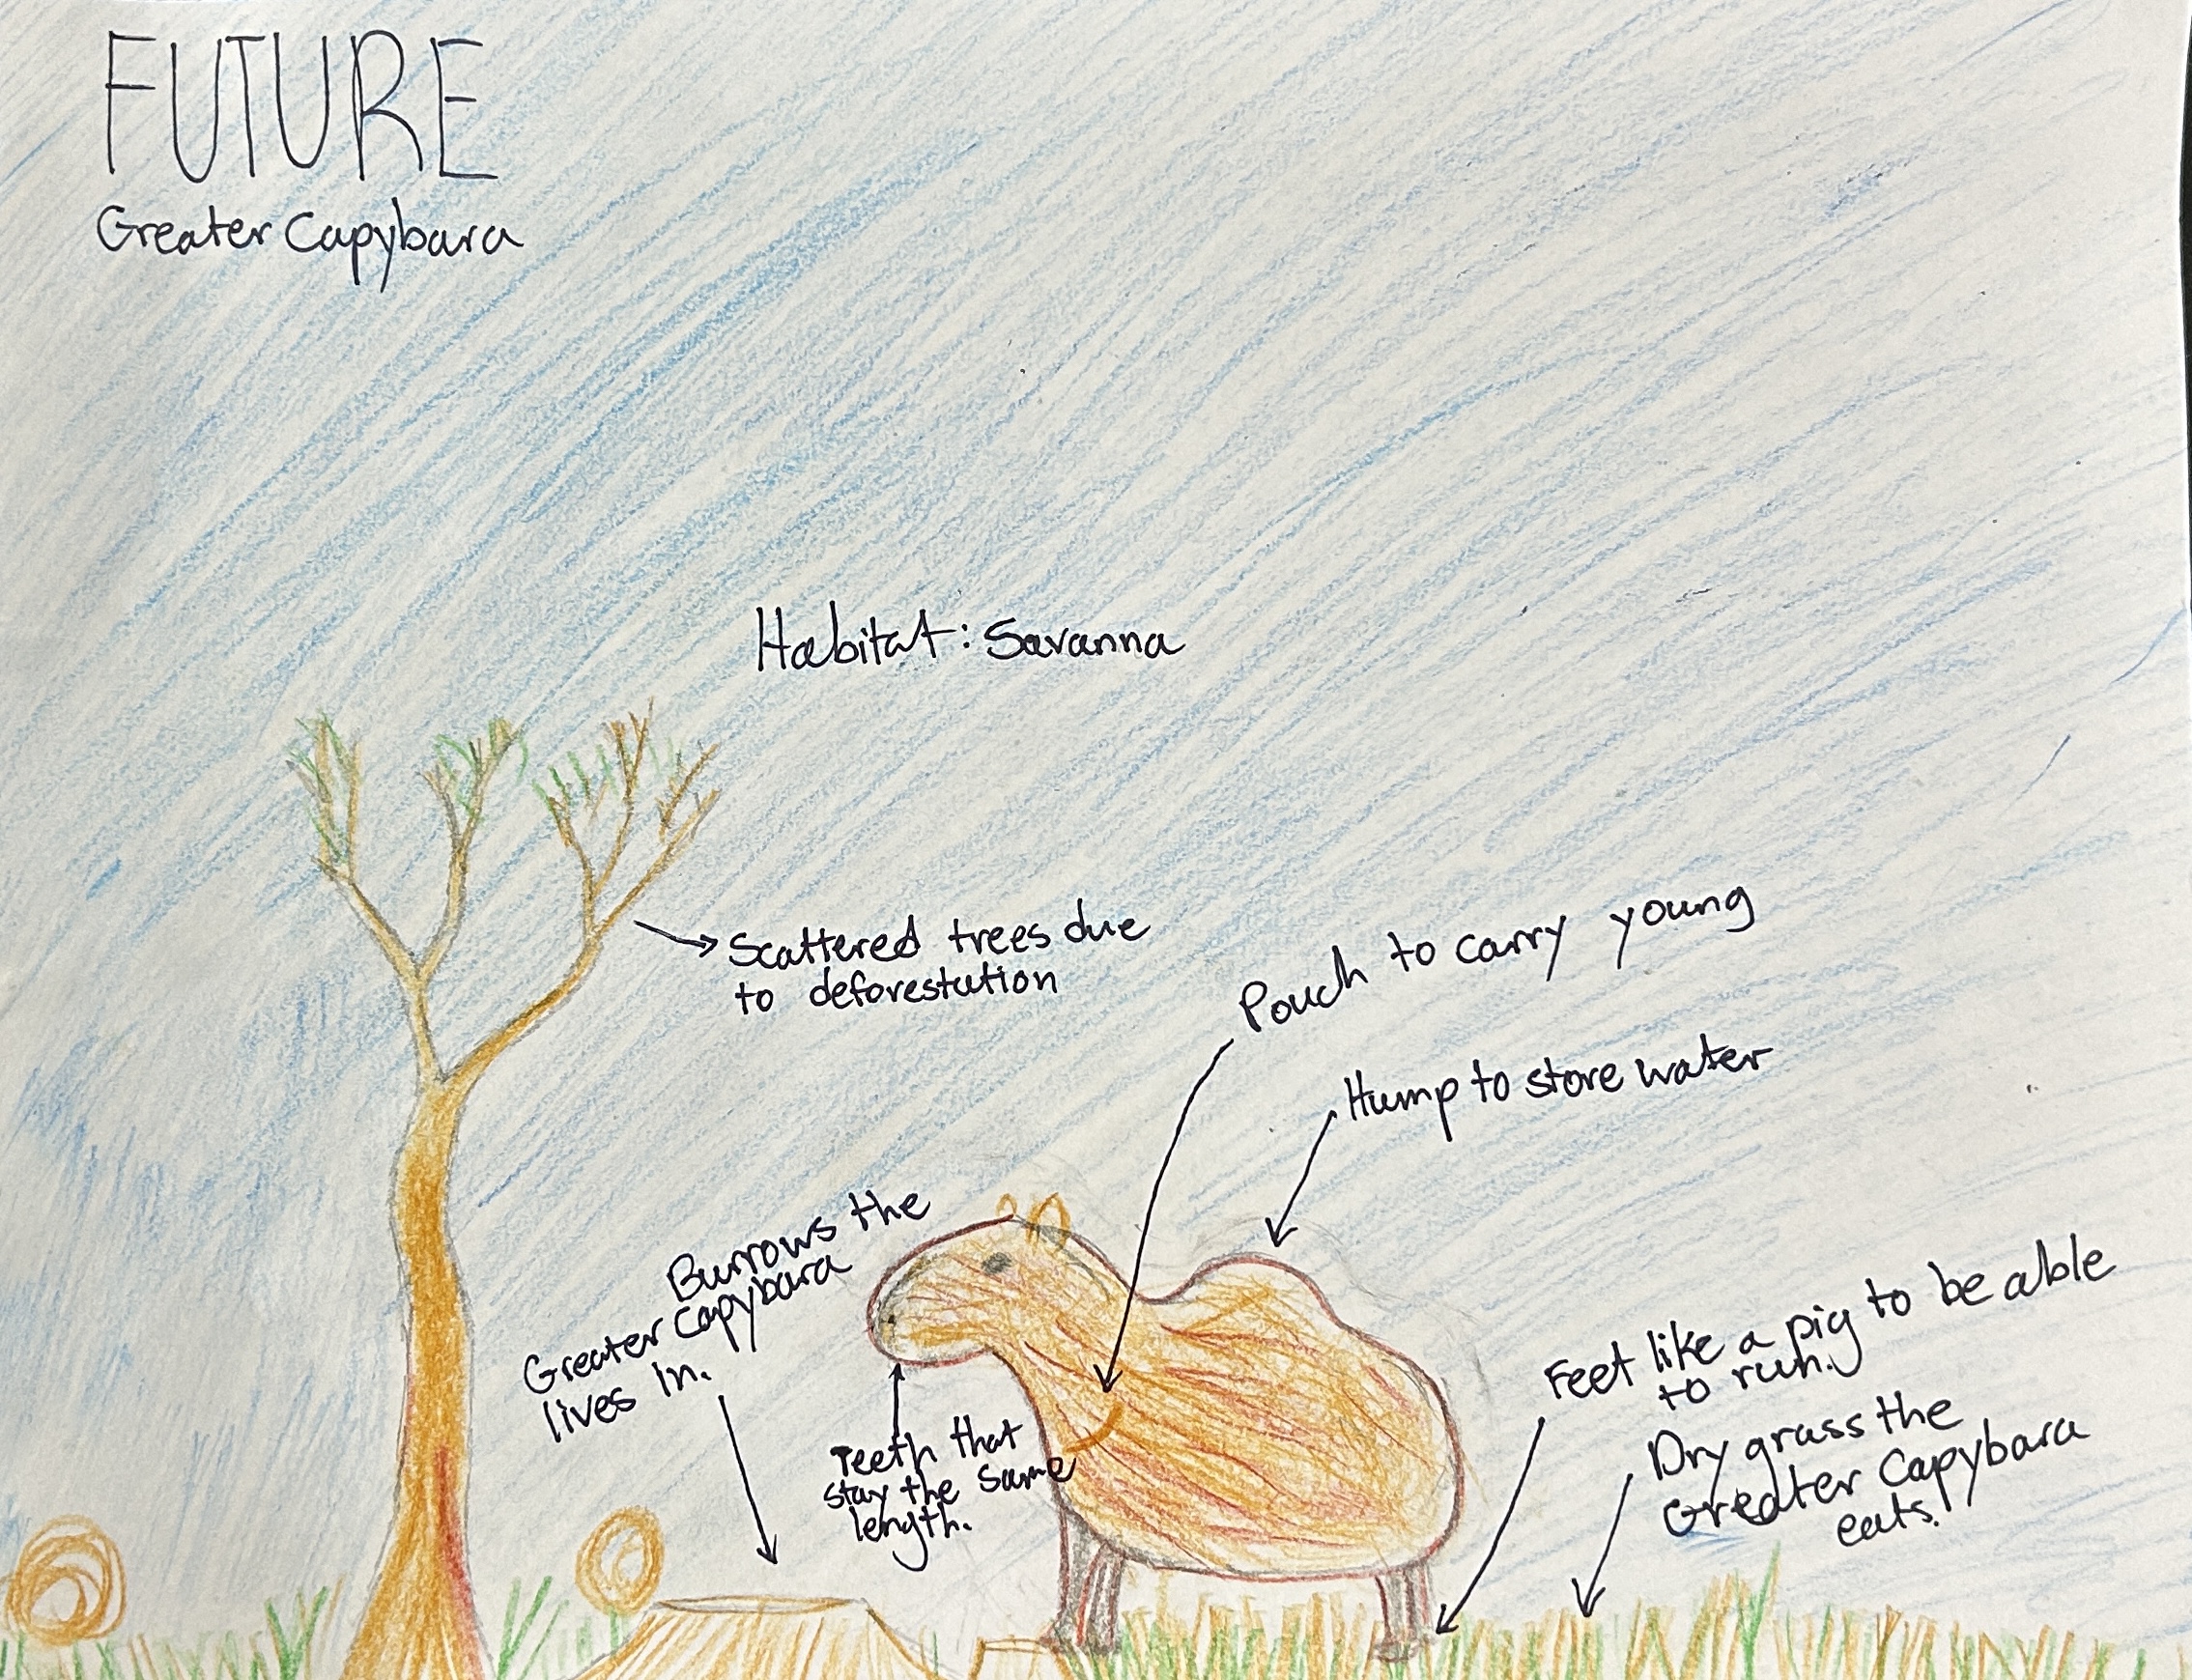 FUTURE
Greater Capybara
Habitat: Savanna
Scattered trees due
to deforestation
Pouch to carry young
Hump to store water
Burrows the
Greater Capybara
lives in.
Teeth that
stay the same
length.
Feet like a pig to be able
to run.
Dry grass the
Greater Capybara
eats.